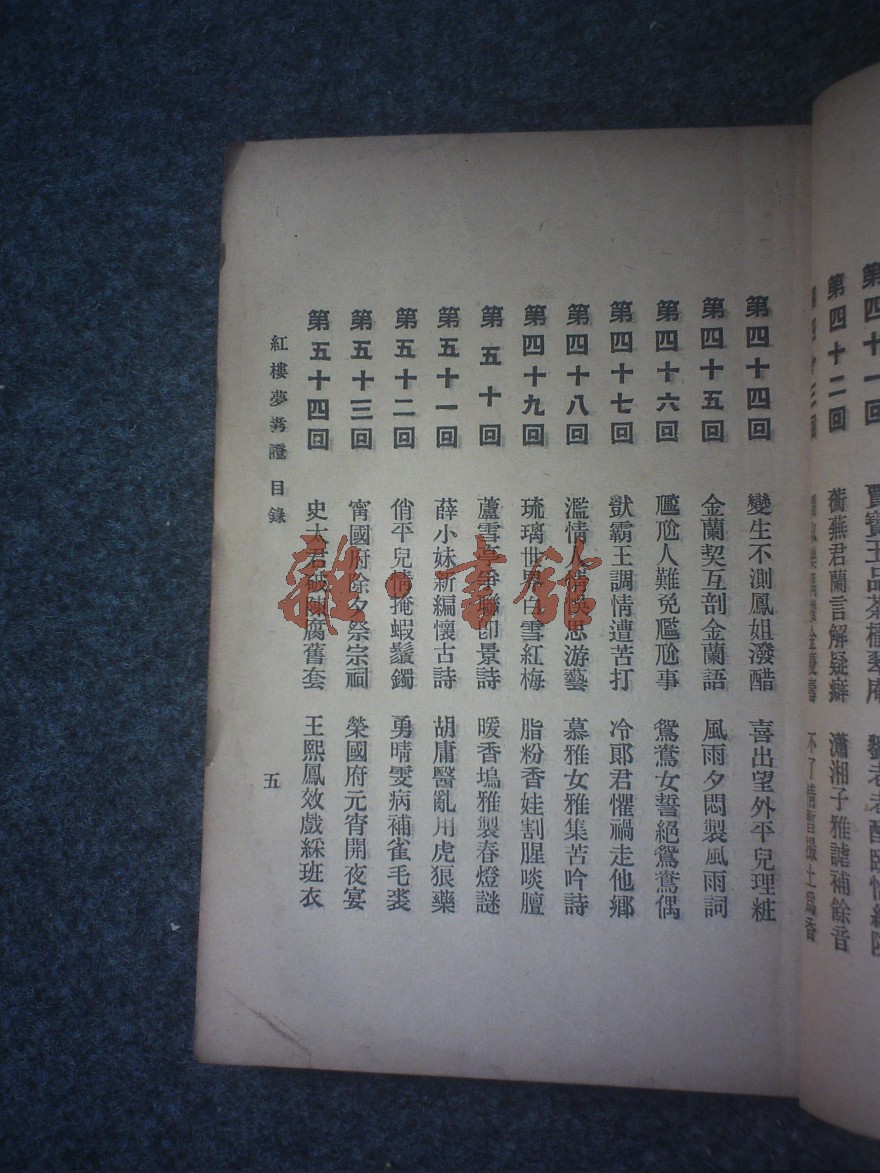 第四十一回 賈寶玉品茶櫳翠庵
第四十二回 蘅蕪君蘭言解疑癖 瀟湘子雅謔補餘音
不了情暫撮土爲香
第四十四回 變生不測鳳姐潑醋 喜出望外平兒理粧
第四十五回 金蘭契互剖金蘭語 風雨夕悶製風雨詞
第四十六回 尶尬人難免尶尬事 鴛鴦女誓絕鴛鴦偶
第四十七回 獃霸王調情遭苦打 冷郞君懼禍走他鄉
第四十八回 濫情人情悮思游藝 慕雅女雅集苦吟詩
第四十九回 琉璃世界白雪紅梅 脂粉香娃割腥啖膻
第五十回 蘆雪亭爭聯卽景詩 暖香塢雅製春燈謎
第五十一回 薛小妹新編懷古詩 胡庸醫亂用虎狼藥
第五十二回 俏平兒情掩蝦鬚鐲 勇晴雯病補雀毛裘
第五十三回 甯國府除夕祭宗祠 榮國府元宵開夜宴
第五十四回 史太君破陳腐舊套 王熙鳳效戲綵班衣
紅樓夢 證 目錄
五
雜·書館